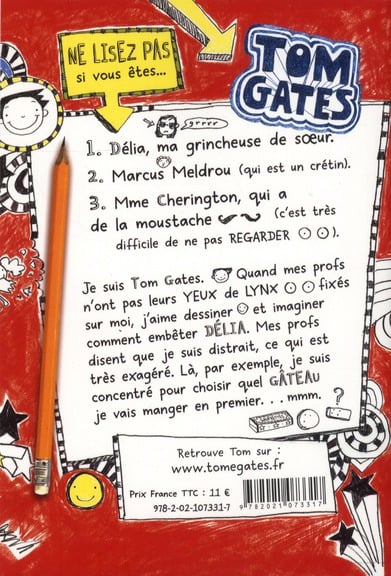 NE LISEZ PAS
si vous êtes...
TOM
GATES
grrrr
1. Délia, ma grincheuse de sœur.
2. Marcus Meldrou (qui est un crétin).
3. Mme Cherington, qui a
de la moustache (c'est très
difficile de ne pas REGARDER).
Je suis Tom Gates. Quand mes profs
n'ont pas leurs YEUX de LYNX fixés
sur moi, j'aime dessiner et imaginer
comment embêter DÉLIA. Mes profs
disent que je suis distrait, ce qui est
très exagéré. Là, par exemple, je suis
concentré pour choisir quel GÂTEAU
je vais manger en premier. . . mmm. ?
Retrouve Tom sur :
www.tomegates.fr
Prix France TTC : 11 €
978-2-02-107331-7
9 782021 073317